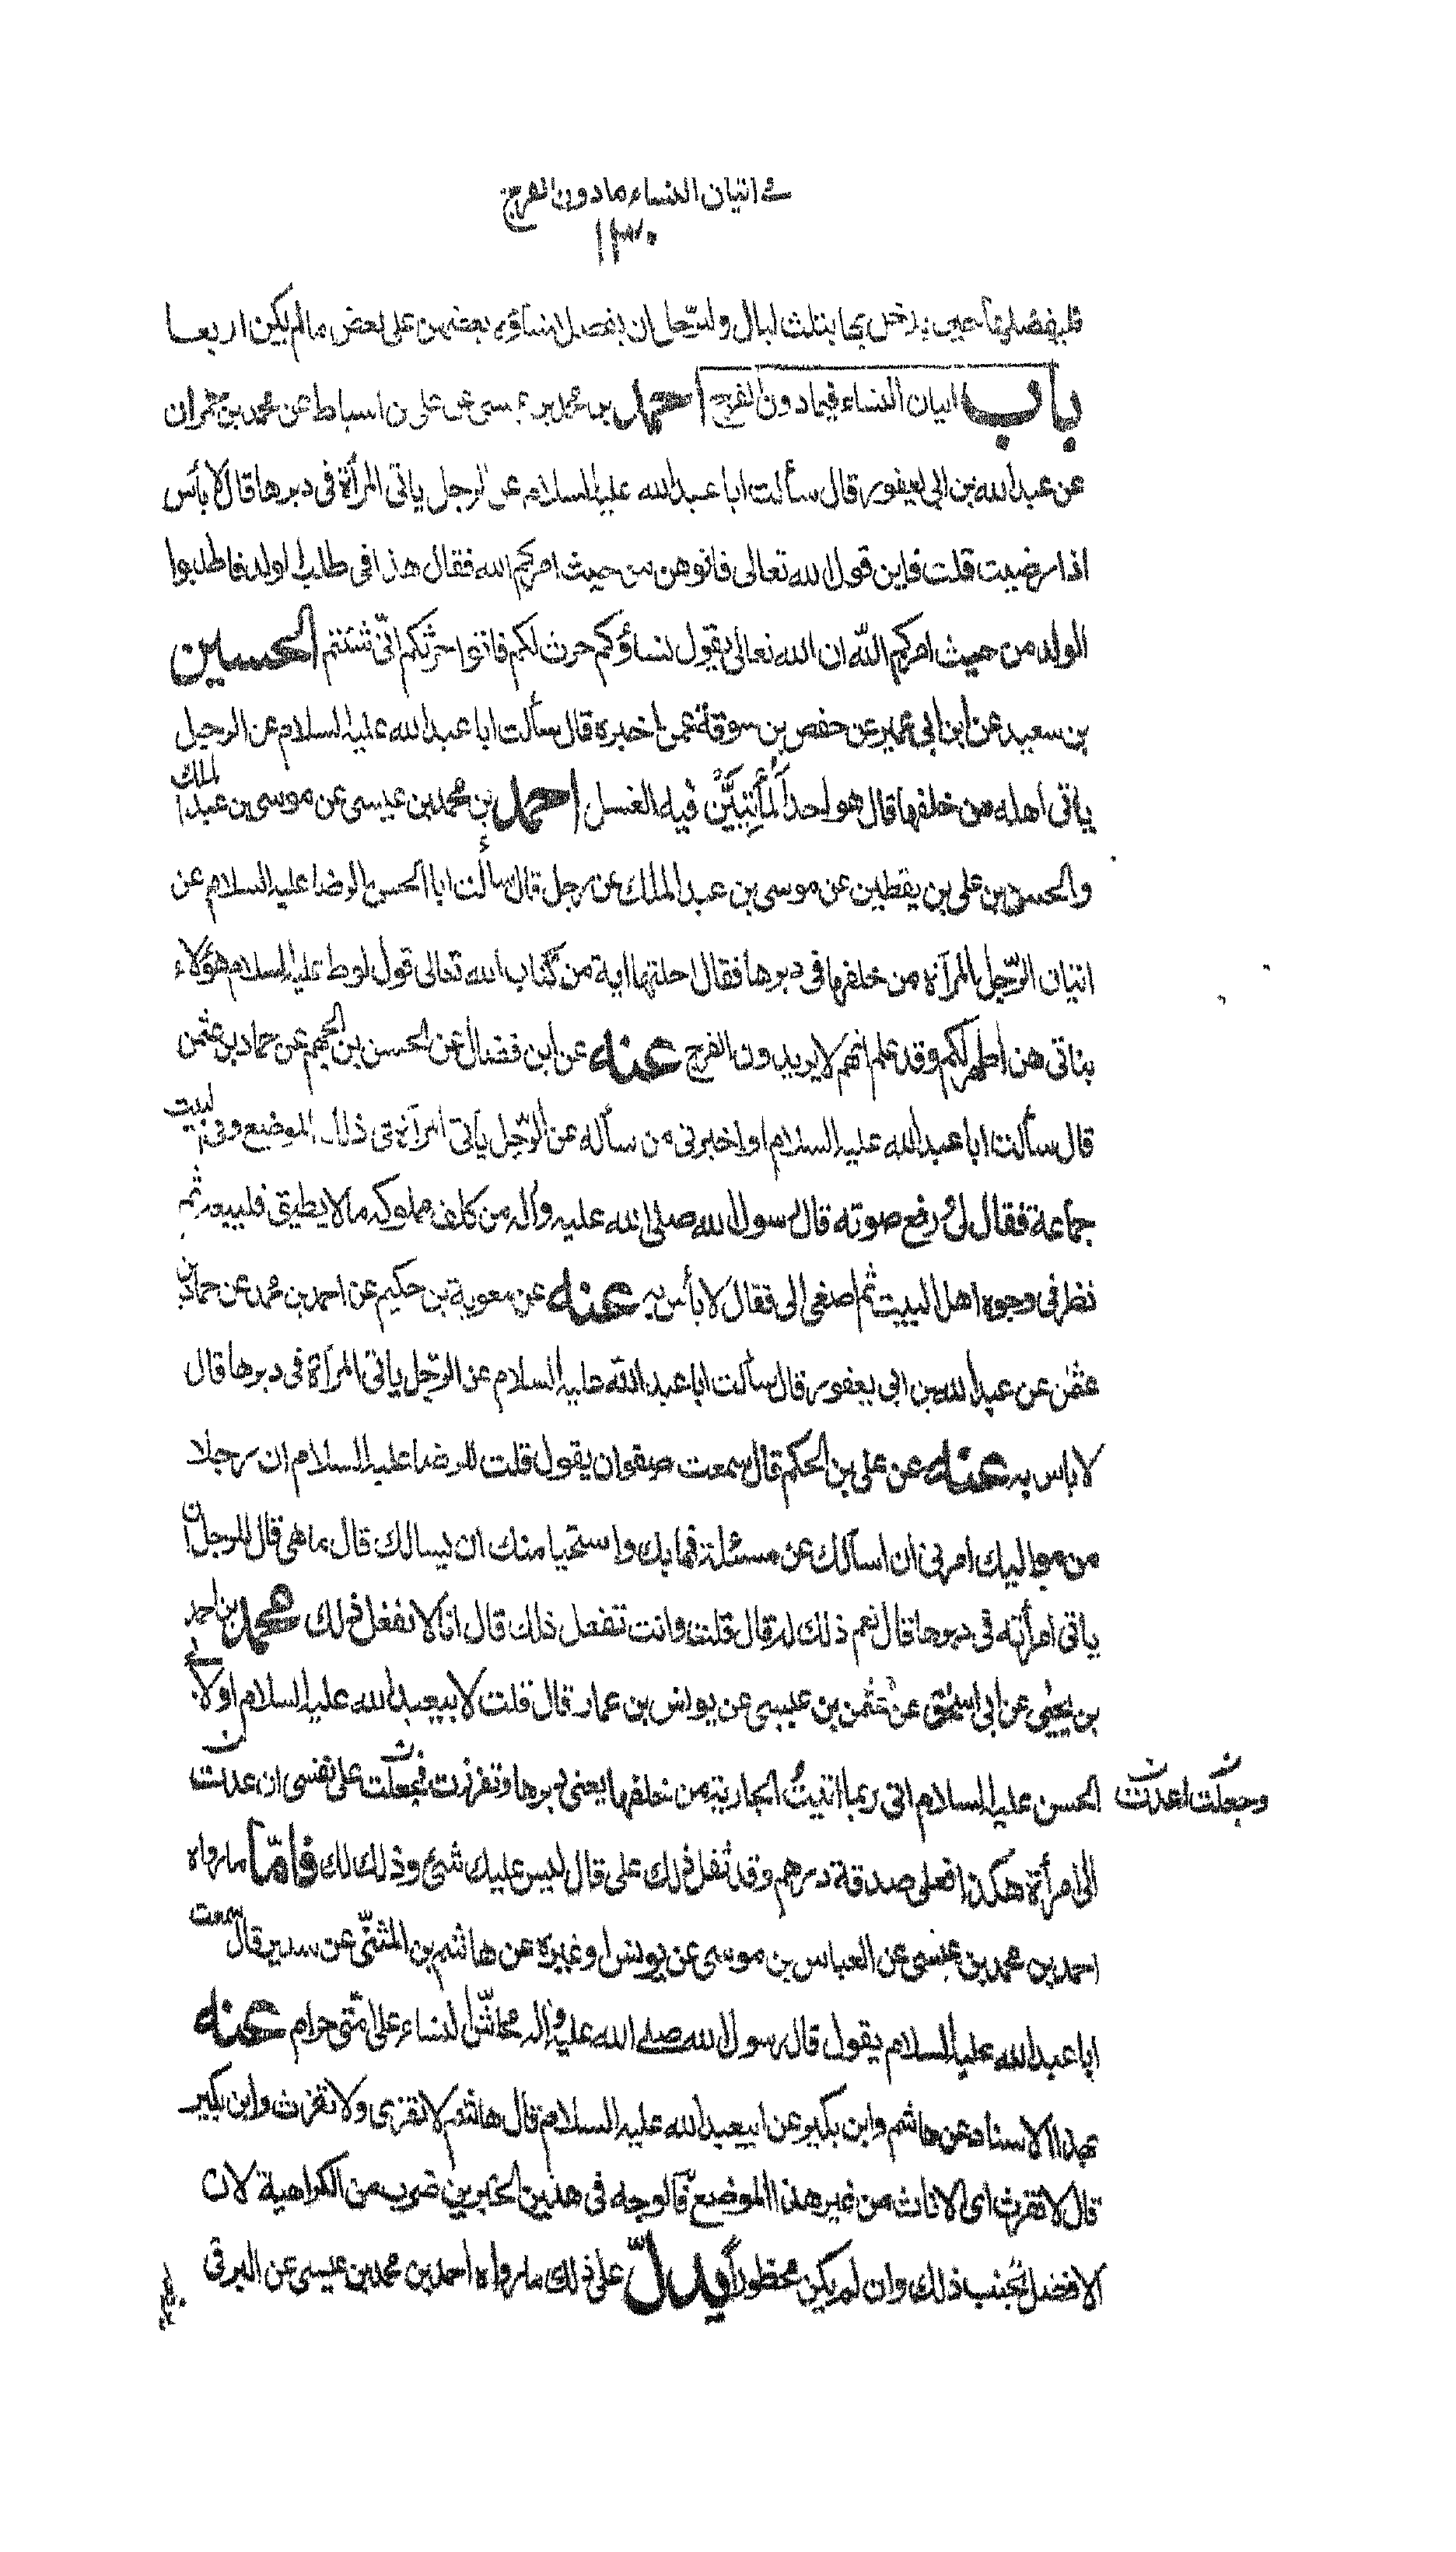 في اتيان النساء مادون الفرج
١٣٠
فليفضلها حين يدخل بها بثلث ليال وللرجل ان يفضل نساؤه بعضهن على بعض مالم يكن اربعا
باب اتيان النساء فيما دون الفرج احمد بن محمد بن عيسى عن علي بن اسباط عن محمد بن حمران
عن عبد الله بن ابي يعفور قال سألت ابا عبد الله عليه السلام عن الرجل ياتي المرأة في دبرها قال لا بأس
اذا رضيت قلت فاين قول الله تعالى فاتوهن من حيث امركم الله فقال هذا في طلب الولد فاطلبوا
الولد من حيث امركم الله ان الله تعالى يقول نساؤكم حرث لكم فاتوا حرثكم انّى شئتم الحسين
بن سعيد عن ابن ابي عمير عن حفص بن سوقة عمن اخبره قال سألت ابا عبد الله عليه السلام عن الرجل
ياتي اهله من خلفها قال هو احد المأتيين فيه الغسل احمد بن محمد بن عيسى عن موسى بن عبد الملك
والحسن بن علي بن يقطين عن موسى بن عبد الملك عن رجل قال سألت ابا الحسن الرضا عليه السلام عن
اتيان الرّجل المرأة من خلفها في دبرها فقال احلتها اية من كتاب الله تعالى قول لوط عليه السلام هؤلاء
بناتي هن اطهر لكم وقد علم انهم لا يريدون الفرج عنه عن ابن فضال عن الحسن بن الجهم عن حماد بن عثمن
قال سألت ابا عبد الله عليه السلام او اخبرني من سأله عن الرّجل يأتي المرأة في ذلك الموضع وفي البيت
جماعة فقال لي ورفع صوته قال رسول الله صلى الله عليه وآله من كلف مملوكه ما لا يطيق فليبعه ثم
نظر في وجوه اهل البيت ثم اصغى الي فقال لا بأس به عنه عن معوية بن حكيم عن احمد بن محمد عن حماد بن
عثمن عن عبد الله بن ابي يعفور قال سألت ابا عبد الله عليه السلام عن الرّجل ياتي المرأة في دبرها قال
لا باس به عنه عن علي بن الحكم قال سمعت صفوان يقول قلت للرضا عليه السلام ان رجلا
من مواليك امرني ان اسألك عن مسئلة فهابك واستحيا منك ان يسالك قال ما هي قال للرجل ان
ياتي امرأته في دبرها قال نعم ذلك له قال قلت وانت تفعل ذلك قال انا لا نفعل ذلك محمد بن احمد
بن يحيى عن ابي اسحق عن عثمن بن عيسى عن يونس بن عمار قال قلت لابيعبد الله عليه السلام او لابي
الحسن عليه السلام اني ربما اتيت الجارية من خلفها يعني دبرها وتفززت فجعلت على نفسي ان عدت
وجعلت اعدت
الى امرأة هكذا فعلي صدقة درهم وقد ثقل ذلك علي قال ليس عليك شئ وذلك لك فامّا ما رواه
احمد بن محمد بن عيسى عن العباس بن موسى عن يونس او غيره عن هاشم بن المثنى عن سدير قال سمعت
ابا عبد الله عليه السلام يقول قال رسول الله صلى الله عليه وآله محاشّ النساء على امتي حرام عنه
بهذا الاسناد عن هاشم وابن بكير عن ابيعبد الله عليه السلام قال هاشم لا تفرى ولا تفرث وابن بكير
قال لا تفرث اى لا تات من غير هذا الموضع فالوجه في هذين الخبرين ضرب من الكراهية لان
الافضل تجنب ذلك وان لم يكن محظورا يدلّ على ذلك ما رواه احمد بن محمد بن عيسى عن البرقي